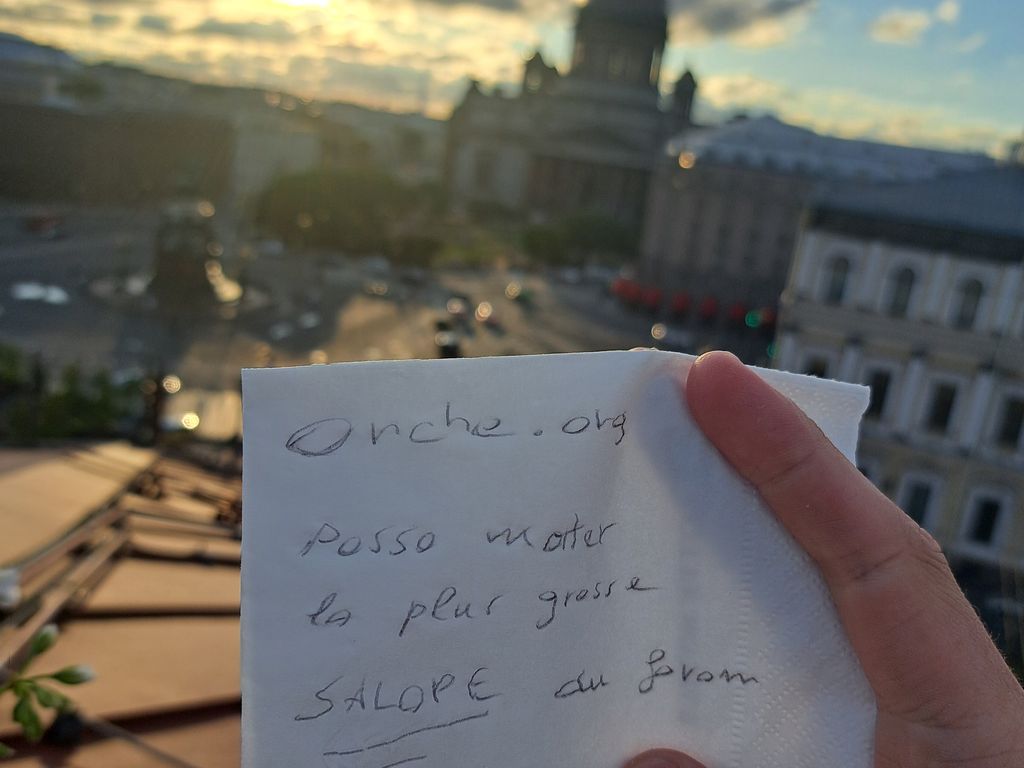 Onche.org
Posso mater
la plus grosse
SALOPE du forom